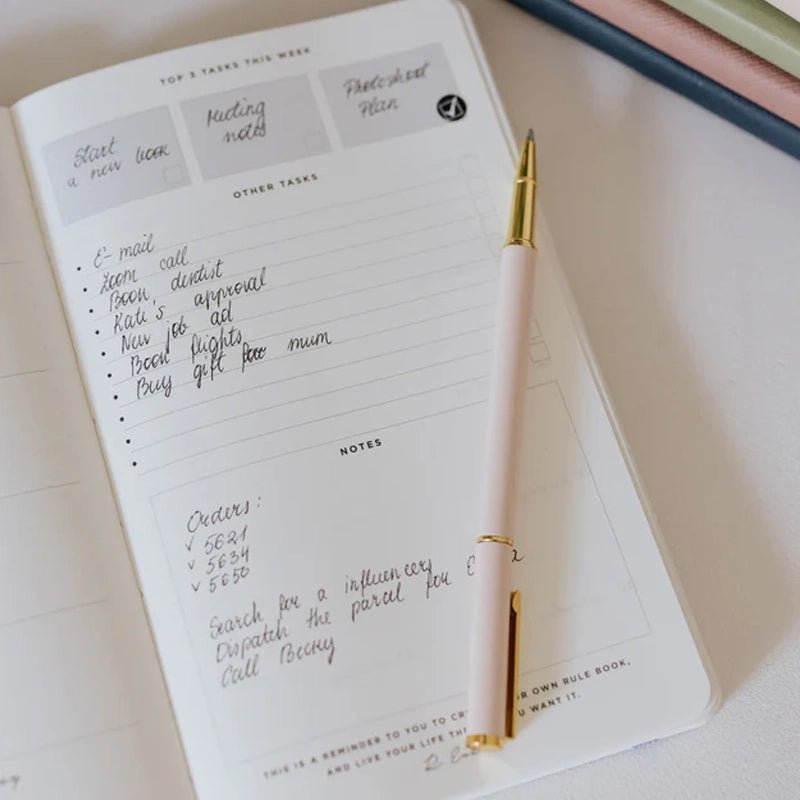 TOP 3 TASKS THIS WEEK
Start
a new book
Meeting
notes
Photoshoot
Plan
OTHER TASKS
• E-mail
• Zoom call
• Book dentist
• Kate's approval
• New job ad
• Book flights
• Buy gift for mum
•
•
•
NOTES
Orders:
✓ 5621
✓ 5634
✓ 5650
Search for a influencers
Dispatch the parcel for
Call Becky
THIS IS A REMINDER TO YOU TO OWN RULE BOOK,
AND LIVE YOUR LIFE U WANT IT.